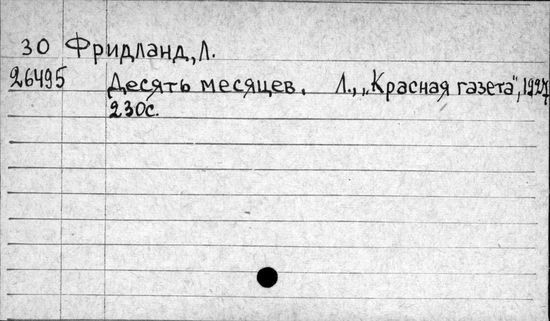 30 Фридланд, Л.
26495 Десять месяцев. Л., „Красная газета", 1927
230с.